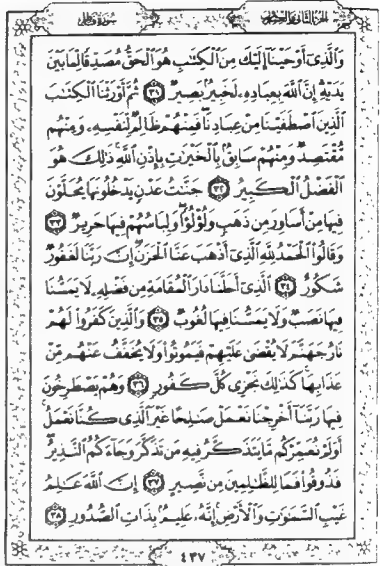 الجزء الثاني والعشرون
سورة فاطر
وَالَّذِي أَوْحَيْنَا إِلَيْكَ مِنَ الْكِتَابِ هُوَ الْحَقُّ مُصَدِّقًا لِمَا بَيْنَ
يَدَيْهِ إِنَّ اللَّهَ بِعِبَادِهِ لَخَبِيرٌ بَصِيرٌ ٣١ ثُمَّ أَوْرَثْنَا الْكِتَابَ
الَّذِينَ اصْطَفَيْنَا مِنْ عِبَادِنَا فَمِنْهُمْ ظَالِمٌ لِنَفْسِهِ وَمِنْهُمْ
مُقْتَصِدٌ وَمِنْهُمْ سَابِقٌ بِالْخَيْرَاتِ بِإِذْنِ اللَّهِ ذَلِكَ هُوَ
الْفَضْلُ الْكَبِيرُ ٣٢ جَنَّاتُ عَدْنٍ يَدْخُلُونَهَا يُحَلَّوْنَ
فِيهَا مِنْ أَسَاوِرَ مِنْ ذَهَبٍ وَلُؤْلُؤًا وَلِبَاسُهُمْ فِيهَا حَرِيرٌ ٣٣
وَقَالُوا الْحَمْدُ لِلَّهِ الَّذِي أَذْهَبَ عَنَّا الْحَزَنَ إِنَّ رَبَّنَا لَغَفُورٌ
شَكُورٌ ٣٤ الَّذِي أَحَلَّنَا دَارَ الْمُقَامَةِ مِنْ فَضْلِهِ لَا يَمَسُّنَا
فِيهَا نَصَبٌ وَلَا يَمَسُّنَا فِيهَا لُغُوبٌ ٣٥ وَالَّذِينَ كَفَرُوا لَهُمْ
نَارُ جَهَنَّمَ لَا يُقْضَى عَلَيْهِمْ فَيَمُوتُوا وَلَا يُخَفَّفُ عَنْهُمْ مِنْ
عَذَابِهَا كَذَلِكَ نَجْزِي كُلَّ كَفُورٍ ٣٦ وَهُمْ يَصْطَرِخُونَ
فِيهَا رَبَّنَا أَخْرِجْنَا نَعْمَلْ صَالِحًا غَيْرَ الَّذِي كُنَّا نَعْمَلُ
أَوَلَمْ نُعَمِّرْكُمْ مَا يَتَذَكَّرُ فِيهِ مَنْ تَذَكَّرَ وَجَاءَكُمُ النَّذِيرُ
فَذُوقُوا فَمَا لِلظَّالِمِينَ مِنْ نَصِيرٍ ٣٧ إِنَّ اللَّهَ عَالِمُ
غَيْبِ السَّمَوَاتِ وَالْأَرْضِ إِنَّهُ عَلِيمٌ بِذَاتِ الصُّدُورِ ٣٨
٤٣٧